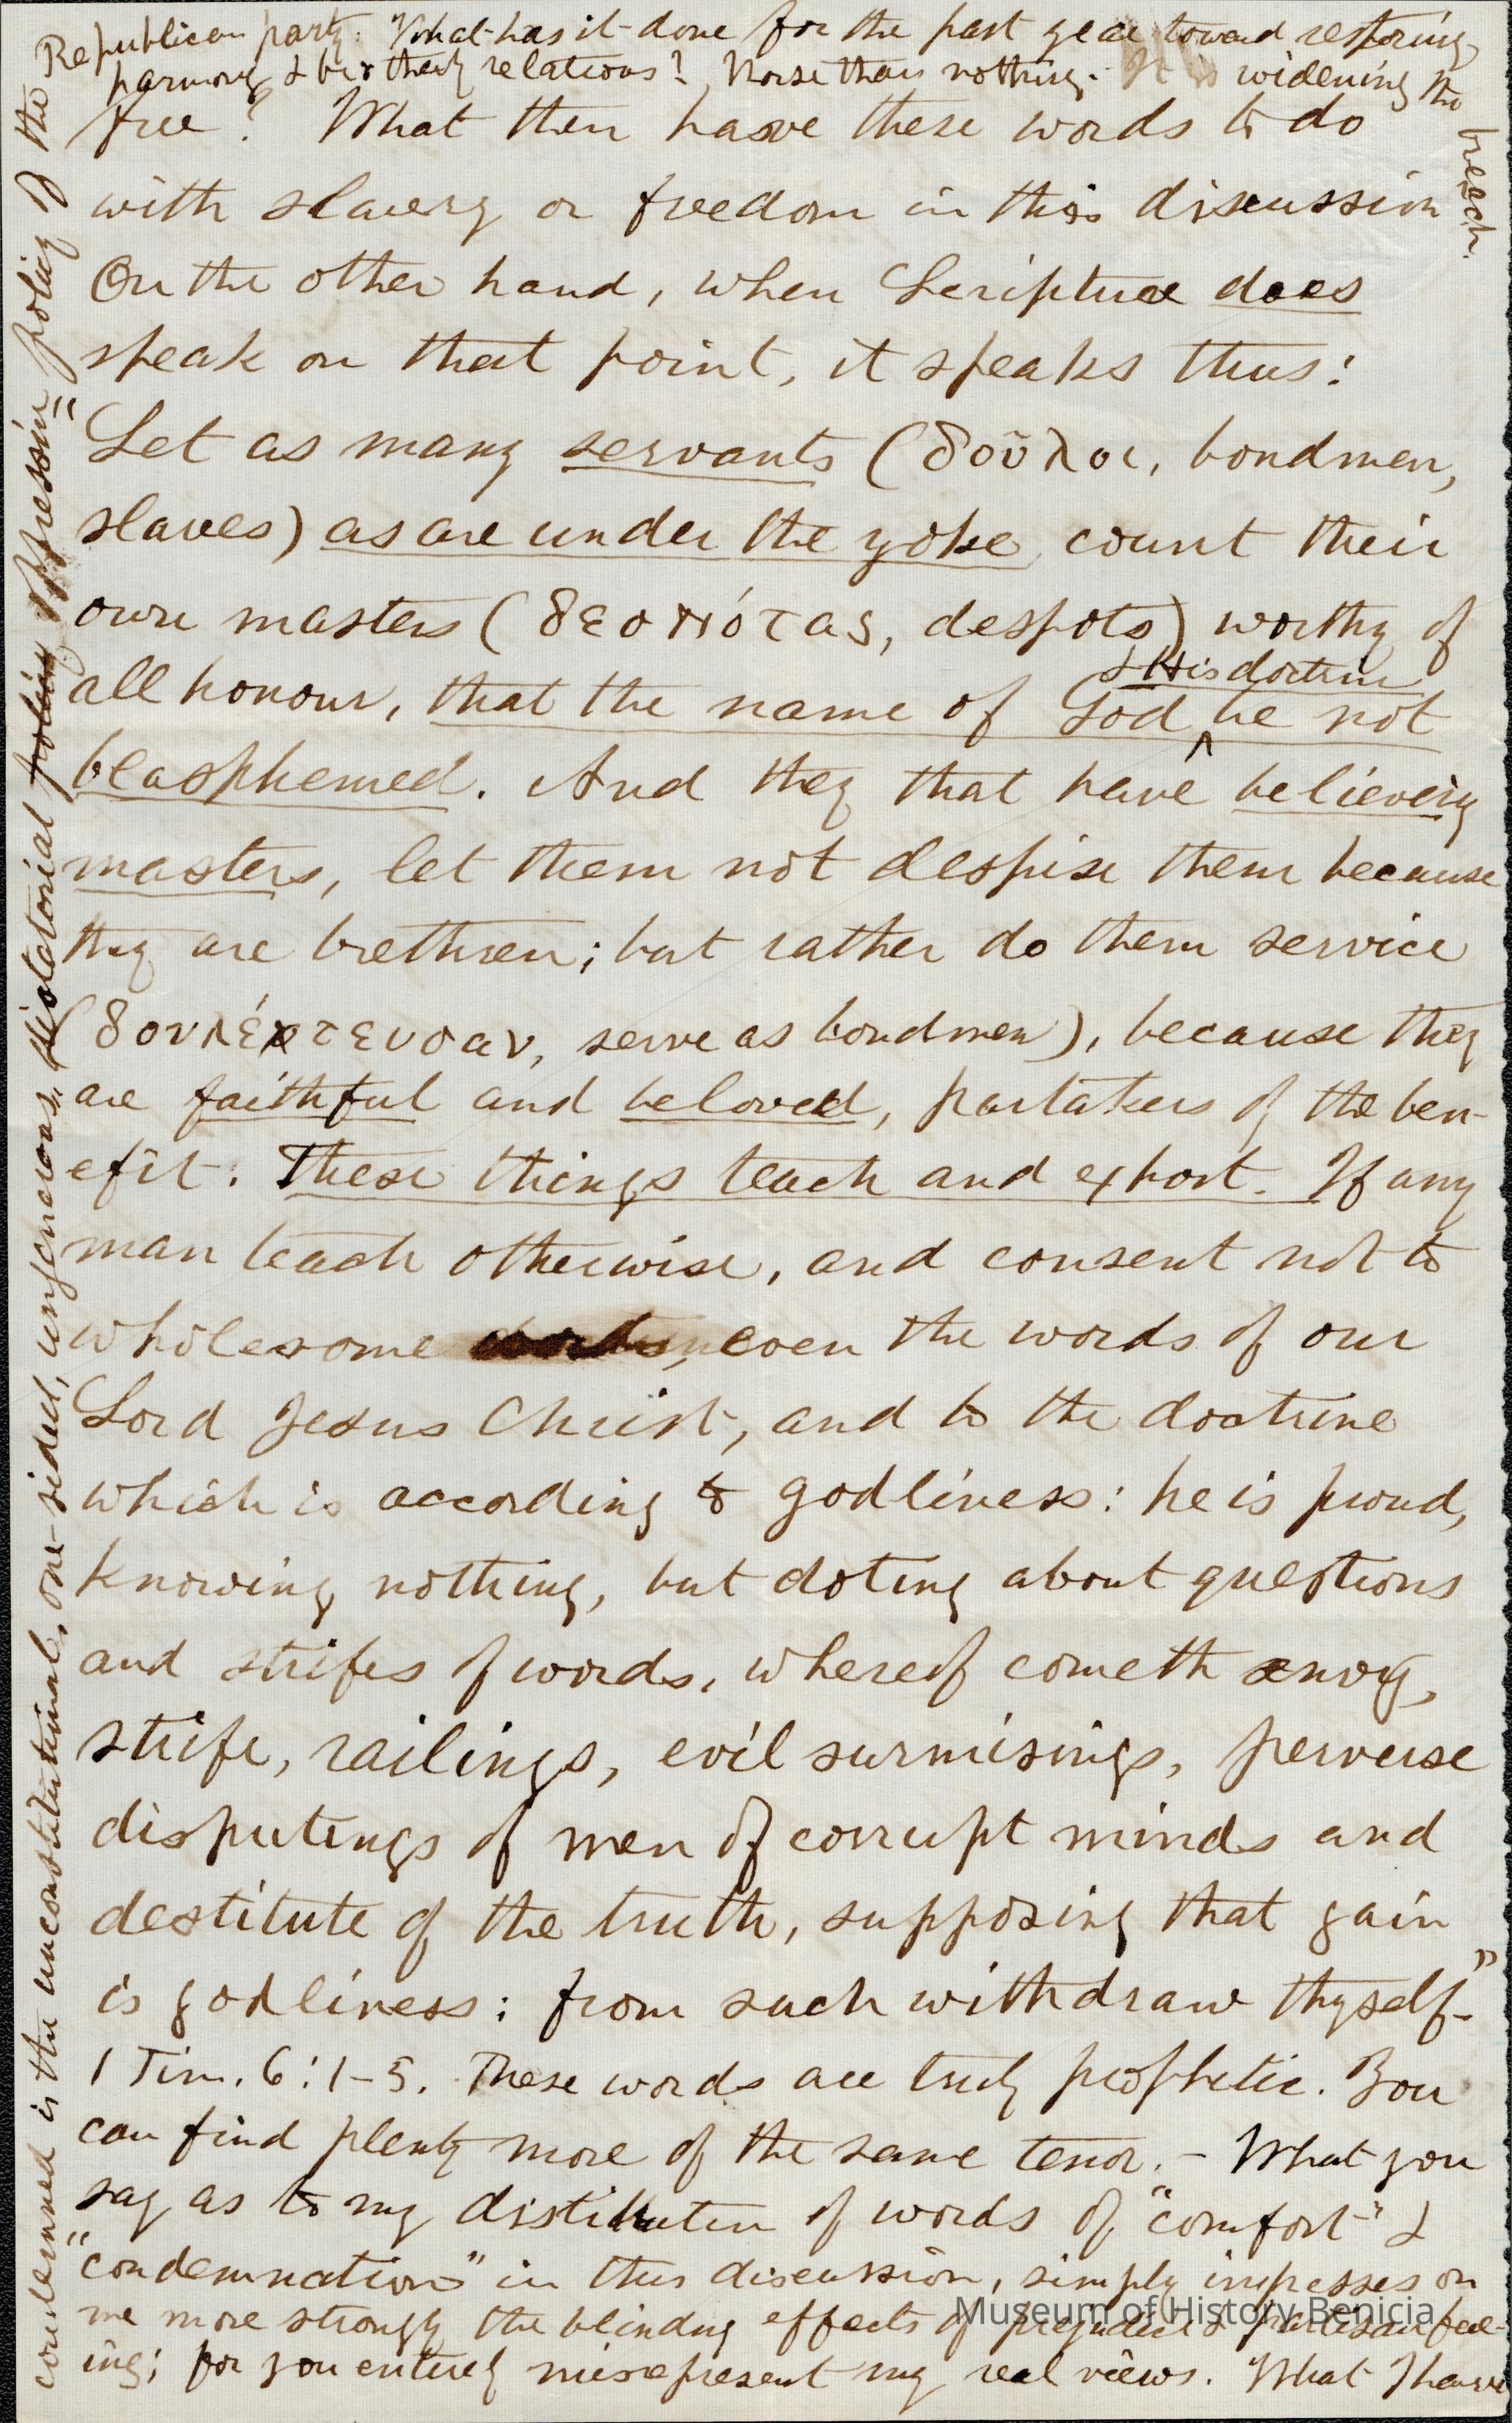 free? What then have these words to do
with slavery or freedom in this discussion
On the other hand, when Scripture does
speak on that point, it speaks thus:
"Let as many servants (δοῦλοι, bondmen,
slaves) as are under the yoke count their
own masters (δεσπότας, despots) worthy of
all honour, that the name of God & His doctrine be not
blasphemed. And they that have believing
masters, let them not despise them because
they are brethren; but rather do them service
(δουλέτευσαν, serve as bondmen), because they
are faithful and beloved, partakers of the ben-
efit. These things teach and exhort. If any
man teach otherwise, and consent not to
wholesome words, even the words of our
Lord Jesus Christ, and to the doctrine
which is according to godliness: he is proud,
knowing nothing, but doting about questions
and strifes of words, whereof cometh envy,
strife, railings, evil surmisings, perverse
disputings of men of corrupt minds and
destitute of the truth, supposing that gain
is godliness: from such withdraw thyself."
1 Tim. 6:1-5. These words are truly prophetic. You
can find plenty more of the same tenor. - What you
say as to my distribution of words of "comfort" &
"condemnation" in this discussion, simply impresses on
me more strongly the blinding effects of prejudice & partisan feel-
ing; for you entirely misrepresent my real views. What I have
condemned is the unconstitutional, one-sided, ungenerous, dictatorial policy oppression policy of the
Republican party. What has it done for the past year toward restoring
harmony & brotherly relations? Worse than nothing. It is widening the
breach.
Museum of History Benicia